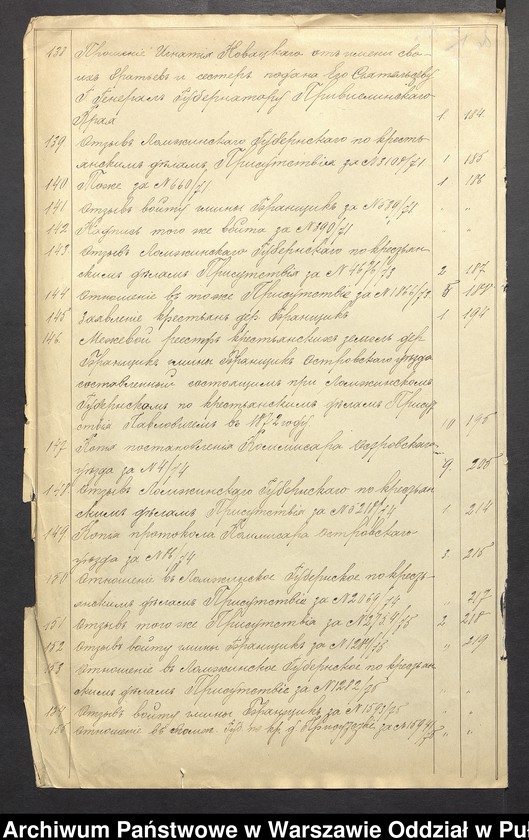 138 Прошеніе Игнатія Новацкаго отъ имени сво-
ихъ братьевъ и сестеръ подана Его Сіятельству
Г Генералъ Губернатору Привислинскаго
Края 1 184
139 Отзывъ Ломжинскаго Губернскаго по кресть-
янскимъ дѣламъ Присутствія за № 3104/71 1 185
140 Тоже за № 660/71 1 186
141 Отзывъ войту гмины Бранщикъ за № 539/71 " "
142 того же войта за № 390/71 " "
143 Отзывъ Ломжинскаго Губернскаго по крестьян-
скимъ дѣламъ Присутствія за № 2 187
144 Отношеніе въ тоже Присутствіе за № 1826/73 5
145 Заявленіе крестьянъ дер. Бранщикъ 1 194
146 Межевой реестръ крестьянскихъ земель дер
Бранщикъ гмины Бранщикъ Островскаго уѣзда
составленной состоящимъ при Ломжинскомъ
Губернскомъ по крестьянскимъ дѣламъ Присут
ствія Павловичемъ въ 1872 году 10 195
147 Копія постановленія Коммисара Островскаго
уѣзда за № 4/74 9 205
148 Отзывъ Ломжинскаго Губернскаго по крестьян
скимъ дѣламъ Присутствія за № 5218/74 1 214
149 Копія протокола Коммисара Островскаго
уѣзда за № 16/74 2 215
150 Отношеніе въ Ломжинское Губернское по кресть-
янскимъ дѣламъ Присутствіе за № 2069/74 " 217
151 Отзывъ того же Присутствія за № 2 218
152 Отзывъ войту гмины Бранщикъ за № 1284/75 " 219
153 Отношеніе въ Ломжинское Губернское по крестьян
скимъ дѣламъ Присутствіе за № 1212/75 " "
154 Отзывъ войту гмины Бранщикъ за № 1593/75 " "
155 Отношеніе въ Ломж. Губ. по кр. д. Присутствіе за № " "
Archiwum Państwowe w Warszawie Oddział w Pu